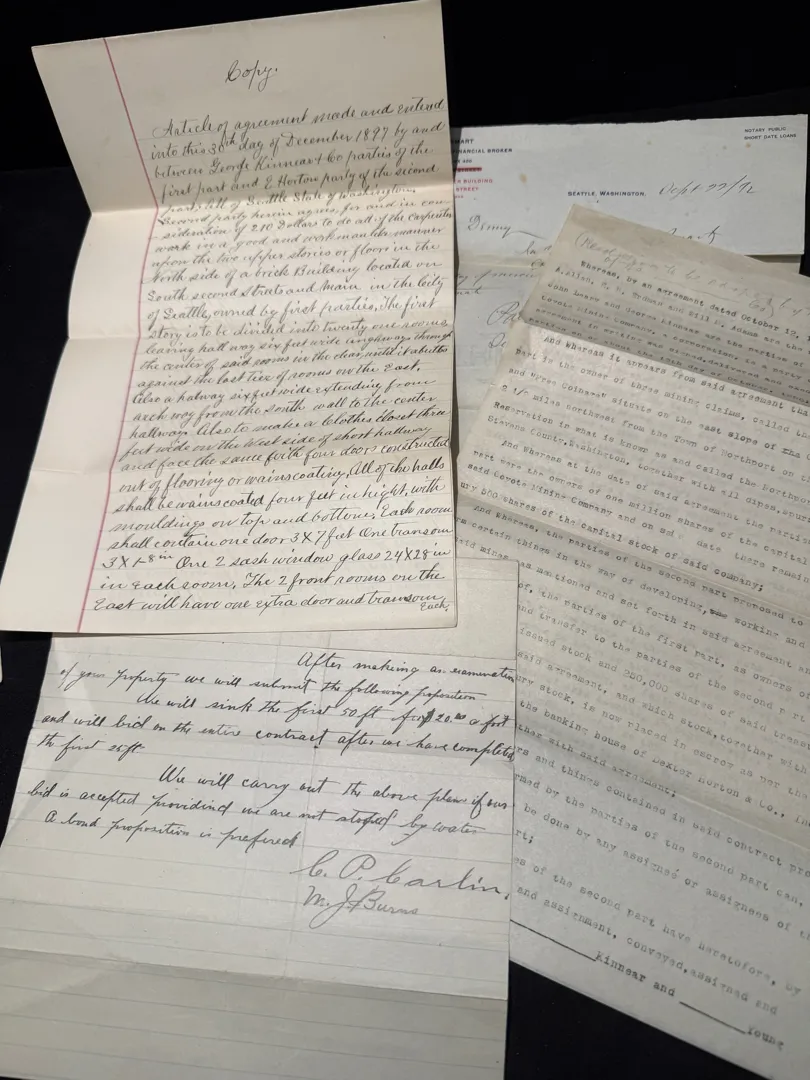 Copy.
Article of agreement made and entered
into this 30th day of December 1897 by and
between George Kinnear & Co parties of the
first part and E Horton party of the second
part all of Seattle State of Washington.
Second party herein agrees for and in con-
sideration of 210 Dollars to do all of the Carpenter
work in a good and workmanlike manner
upon the two upper stories or floors in the
North side of a brick Building located on
South second Street and Main in the City
of Seattle, owned by first parties. The first
story is to be divided into twenty one rooms
leaving hall way six feet wide through
the center of said rooms in the clear, until it abuttes
against the last tier of rooms on the East.
Also a hallway six feet wide extending from
arch way from the south wall to the center
hallway. Also to make a Clothes closet three
feet wide on the West side of short hallway
and face the same with four doors constructed
out of flooring or wainscoating. All of the halls
shall be wainscoated four feet in height, with
mouldings on top and bottom. Each room
shall contain one door 3 X 7 feet One transom
3 X 1-8 in One 2 sash window glass 24 X 28 in
in Each room. The 2 front rooms on the
East will have one extra door and transom
Each
FINANCIAL BROKER
BUILDING
STREET
NOTARY PUBLIC
SHORT DATE LOANS
SEATTLE, WASHINGTON, Sept 22/92
Denny
Whereas, by an agreement dated October 12,
Allen, and Bill E. Adams are the
John Leary and George Kinnear are the parties of
Coyote Mining Company, a corporation, is a party
And Whereas it appears from said agreement tha
part is the owner of three mining claims, called the
and situate on the east slope of the
2 1/2 miles northwest from the Town of Northport on th
Reservation in what is known as and called the Northpo
Stevens County, Washington, together with all dips, spurs
And Whereas at the date of said agreement the parties
part were the owners of one million shares of the capital
said Coyote Mining Company and on said date there remain
ury 500 shares of the capital stock of said company;
And Whereas, the parties of the second part proposed to
certain things in the way of developing, working and
said mines as mentioned and set forth in said agreement an
of, the parties of the first part, as owners o
and transfer to the parties of the second part
issued stock and 250,000 shares of said treas
said agreement, and which stock, together with
ury stock, is now placed in escrow as per the
the banking house of Dexter Horton & Co., Inc
ther with said agreement;
rs and things contained in said contract pro
rmed by the parties of the second part can,
be done by any assignee or assignees of th
rt;
es of the second part have heretofore, by
and assignment, conveyed, assigned and
Kinnear and Young
After making an examination
of your property we will submit the following proposition
We will sink the first 50 ft for $20.00 a foot
and will bid on the entire contract after we have completed
the first 25 ft
We will carry out the above plans if our
bid is accepted providing we are not stoped by water
A bond proposition is prefered
C. P. Carlin,
M. J. Burns